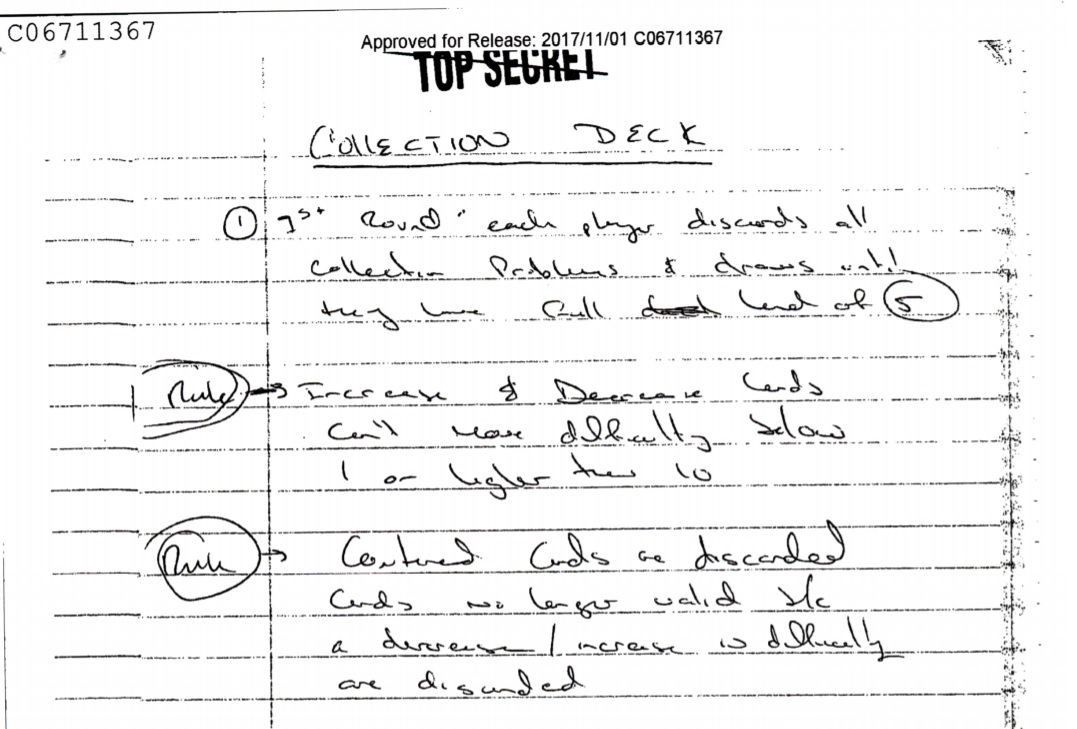 C06711367
Approved for Release: 2017/11/01 C06711367
TOP SECRET
COLLECTION DECK
① 1st Round " each player discards all
Collection Problems & draws until
they have full hand of 5
Rule → Increase & Decrease Cards
Can't move difficulty below
1 or higher than 10
Rule → Cards are discarded
Cards no longer valid b/c
a decrease / increase in difficulty
are discarded